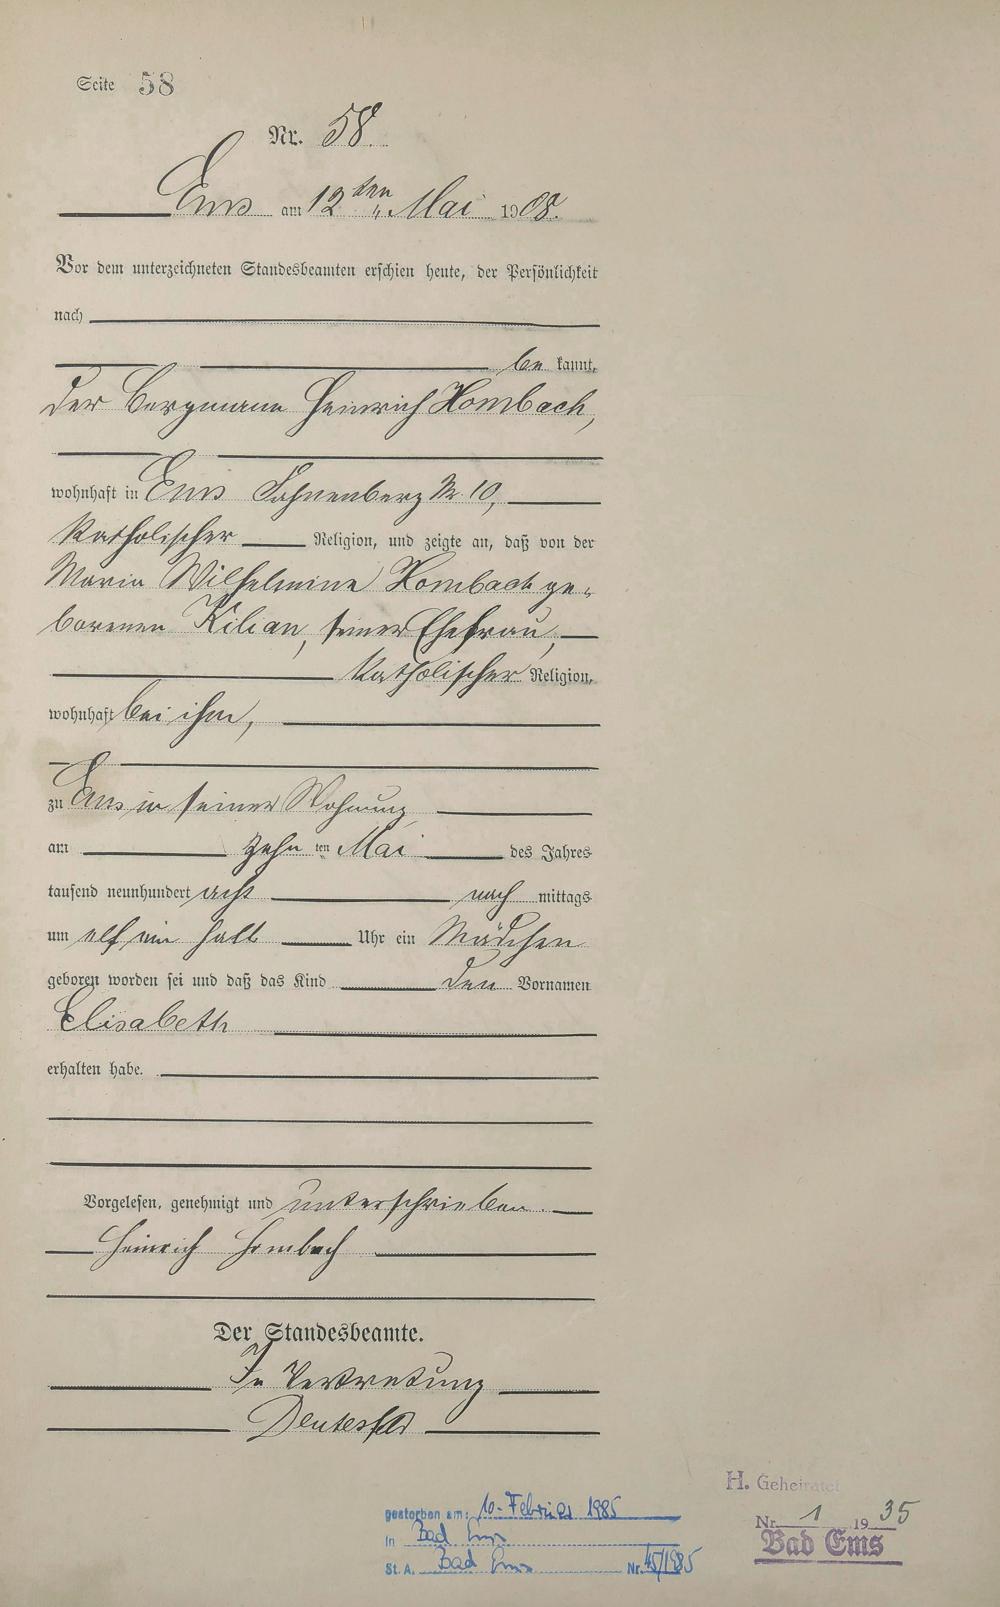 Seite 58
Nr. 58.
Ems am 12ten Mai 1908.
Vor dem unterzeichneten Standesbeamten erschien heute, der Persönlichkeit
nach
be kannt,
der Bergmann Heinrich Hombach,
wohnhaft in Ems Nr 10,
katholischer Religion, und zeigte an, daß von der
Maria Wilhelmine Hombach ge-
borenen Kilian, seiner Ehefrau,
katholischer Religion,
wohnhaft bei ihm,
zu Ems in seiner Wohnung
am zehn ten Mai des Jahres
tausend neunhundert acht nach mittags
um elf ein halb Uhr ein Mädchen
geboren worden sei und daß das Kind den Vornamen
Elisabeth
erhalten habe.
Vorgelesen, genehmigt und unterschrieben.
Heinrich Hombach
Der Standesbeamte.
In Vertretung
H. Geheiratet
Nr. 1 1935
Bad Ems
gestorben am: 10. Februar 1985
in Bad Ems
St. A. Bad Ems Nr. 45/1985